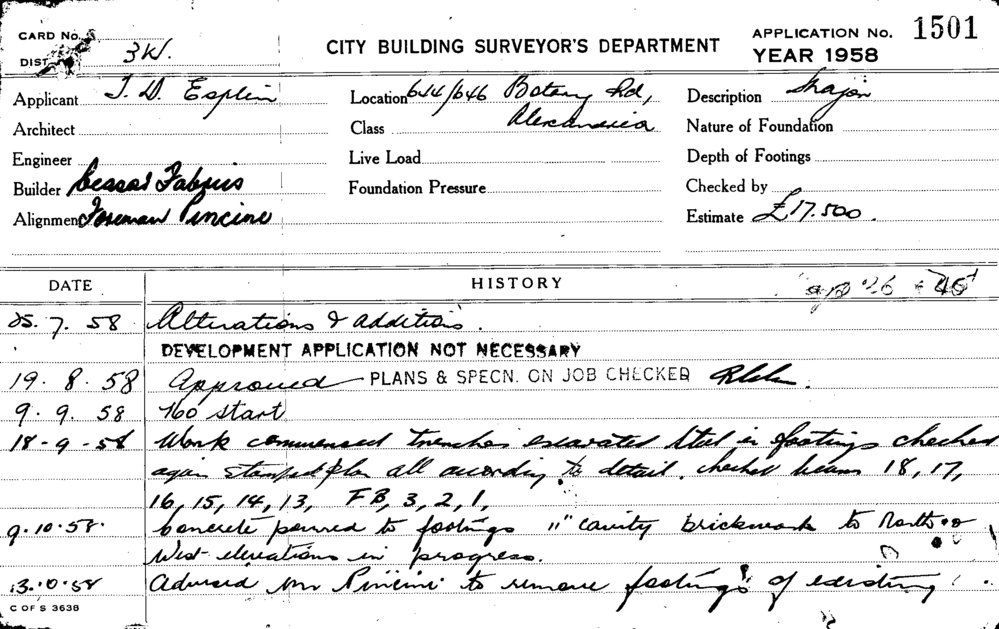 CARD No.
DIST. 3W.
CITY BUILDING SURVEYOR'S DEPARTMENT
APPLICATION No. 1501
YEAR 1958
Applicant T. D. Esplin
Location 644/646 Botany Rd,
Alexandria
Description Major
Architect
Class
Nature of Foundation
Engineer
Live Load
Depth of Footings
Builder
Foundation Pressure
Checked by
Alignment Foreman Pincini
Estimate £17.500.
DATE HISTORY
25. 7. 58 Alterations & additions.
DEVELOPMENT APPLICATION NOT NECESSARY
19. 8. 58 Approved PLANS & SPECN. ON JOB CHECKED
9. 9. 58 No start
18-9-58 Work commenced trenches excavated steel in footings checked
again stamped plan all according to detail. checked beams 18, 17,
16, 15, 14, 13, FB, 3, 2, 1,
9.10.58. Concrete poured to footings 11" cavity brickwork to North
West elevations in progress.
13.10.58 Advised Mr Pincini to remove footings of existing
C OF S 3638